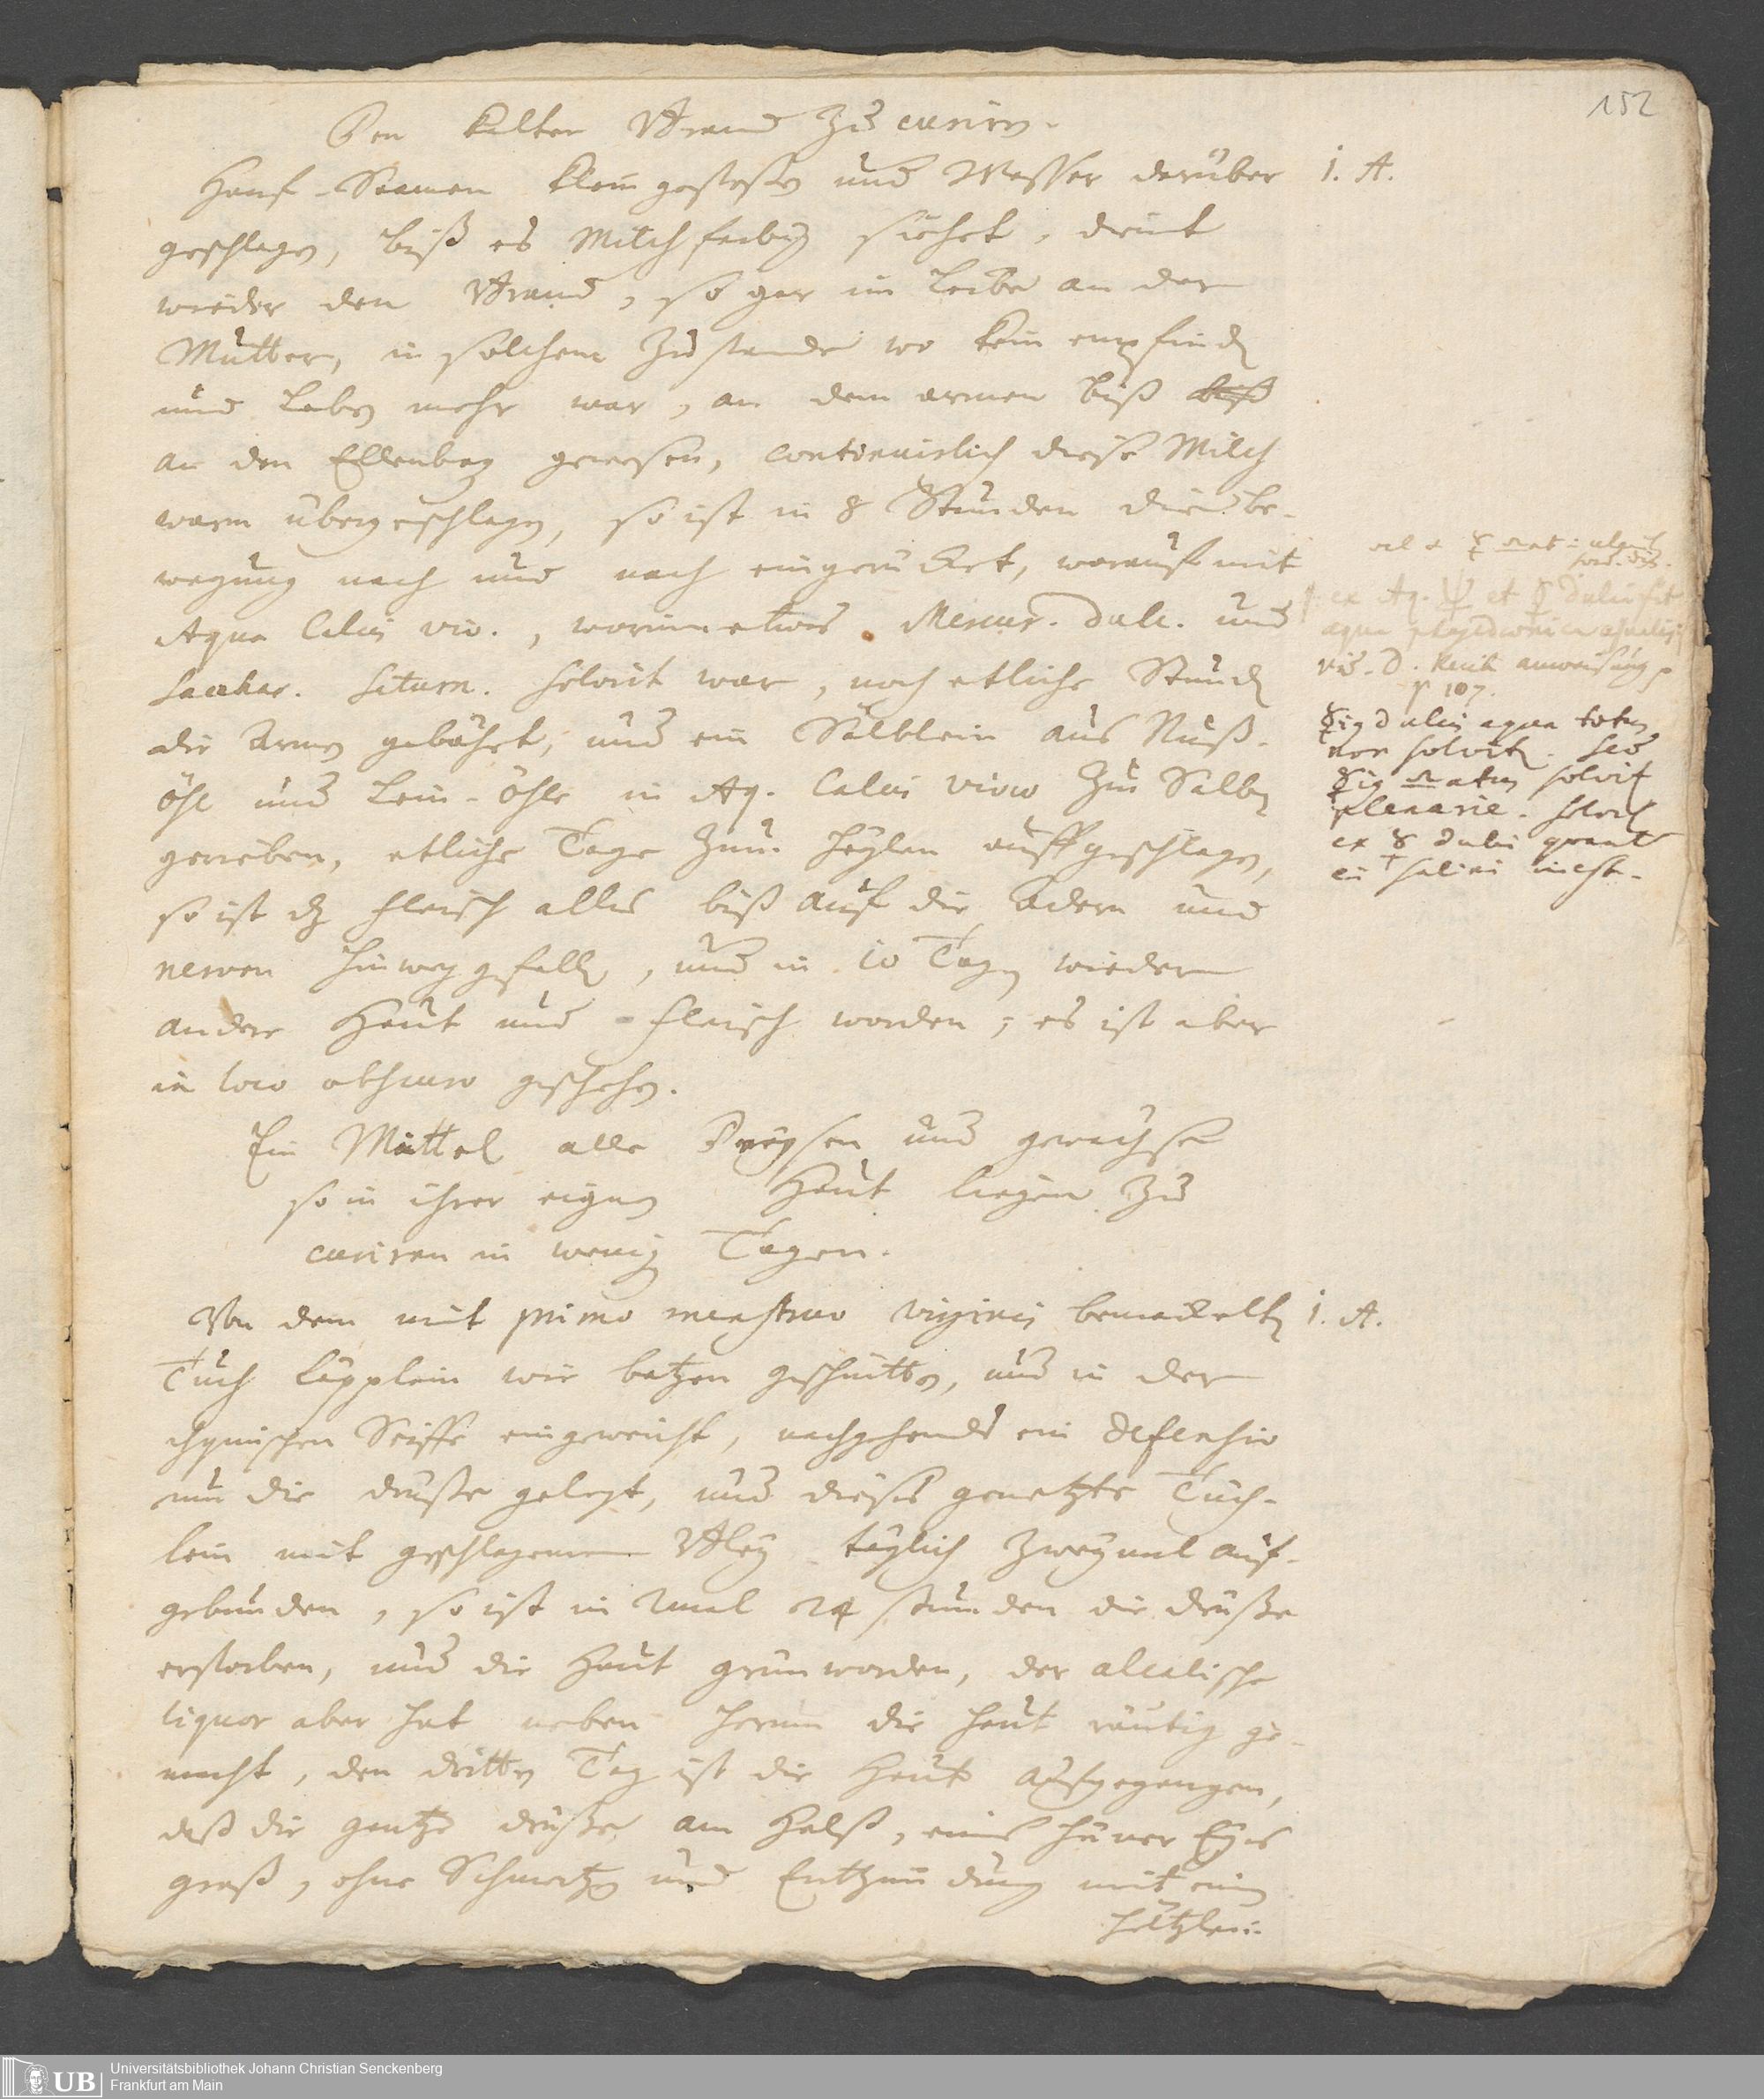 152
Den kalten Brand zu curiren.
Hanf-Saamen klein gestoßen und Wasser darüber
geschlagen, biß es Milchfarbig siehet, dient
wieder den Brand, so gar im Leibe an der
Mutter, in solchem Zustande wo kein empfinden
und Leben mehr war, an dem armen biß
an den Ellenbog gewesen, continuirlich diese Milch
warm übergeschlagen, so ist in 8 Stunden die be-
wegung nach und nach eingerücket, worauf mit
Aqua Calcis viv., worinn etwas Mercur. dulc. und
Sacchar. Saturn. solvirt war, noch etliche Stunden
die Armen gebähet, und ein Sälblein aus Nuß-
öhl und Lein-öhle in Aq. Calcis viva zur Salben
gerieben, etliche Tage zum heylen auffgeschlagen,
so ist dz fleisch alles biß auf die Adern und
nerven hinweg gefallen, und in 10 Tagen wieder
andere Haut und fleisch worden, es ist aber
in loco obscuro geschehen.
Ein Mittel alle Drüsen und gewächse
so in ihrer eignen Haut liegen zu
curiren in wenig Tagen.
Von dem mit primo menstruo virginis bemackelten
Tuch Läpplein wie batzen geschnitten, und in der
chymischen Seiffe eingeweicht, nachgehends ein defensiv
um die drüße gelegt, und dieses genetzte Tüch-
lein mit geschlagenem Bley täglich zweymal auf-
gebunden, so ist in 2mal 24 stunden die drüße
erstorben, und die Haut grün worden, der alcalische
liquor aber hat neben herum die haut räudig ge-
macht, den dritten Tag ist die Haut aufgegangen,
daß die gantze drüße am Halß, eines hüner Eyes
groß, ohne Schmertzen und Entzündung mit einem
höltzlein
i. A.
ex Aq. et dulci fit
aqua phagedaenica
vid. D. anweisung
p 107.
dulcis aqua
non solvit. sed
solvit
plenarie. solvit
ex ☿ dulci quant
ei salini inest.
i. A.
UB Universitätsbibliothek Johann Christian Senckenberg
Frankfurt am Main